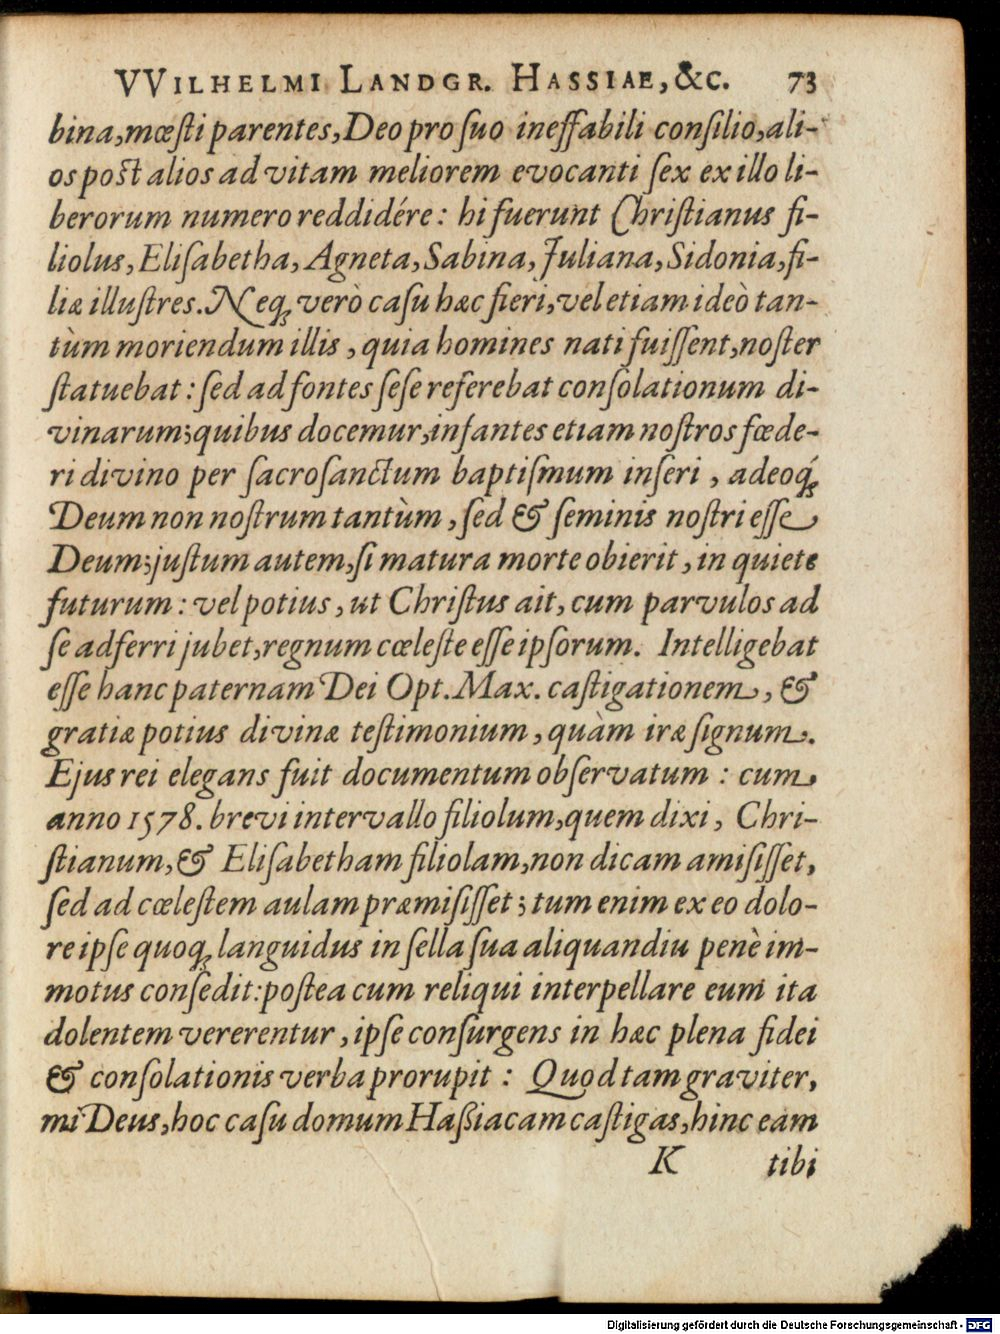 VVILHELMI LANDGR. HASSIAE, &C. 73
bina, mœſti parentes, Deo pro ſuo ineffabili conſilio, ali-
os poſt alios ad vitam meliorem evocanti ſex ex illo li-
berorum numero reddidére: hi fuerunt Chriſtianus fi-
liolus, Eliſabetha, Agneta, Sabina, Juliana, Sidonia, fi-
liæ illuſtres. Neq; verò caſu hæc fieri, vel etiam ideò tan-
tùm moriendum illis, quia homines nati fuiſſent, noſter
ſtatuebat: ſed ad fontes ſeſe referebat conſolationum di-
vinarum; quibus docemur, infantes etiam noſtros fœde-
ri divino per ſacroſanctum baptiſmum inſeri, adeoq́;
Deum non noſtrum tantùm, ſed & ſeminis noſtri eſſe
Deum; juſtum autem, ſi matura morte obierit, in quiete
futurum: vel potius, ut Chriſtus ait, cum parvulos ad
ſe adferri jubet, regnum cœleſte eſſe ipſorum. Intelligebat
eſſe hanc paternam Dei Opt. Max. caſtigationem, &
gratiæ potius divinæ teſtimonium, quàm iræ ſignum.
Ejus rei elegans fuit documentum obſervatum: cum
anno 1578. brevi intervallo filiolum, quem dixi, Chri-
ſtianum, & Eliſabetham filiolam, non dicam amiſiſſet,
ſed ad cœleſtem aulam præmiſiſſet; tum enim ex eo dolo-
re ipſe quoq; languidus in ſella ſua aliquandiu penè im-
motus conſedit: poſtea cum reliqui interpellare eum ita
dolentem vererentur, ipſe conſurgens in hæc plena fidei
& conſolationis verba prorupit: Quod tam graviter,
mi Deus, hoc caſu domum Haßiacam caſtigas, hinc eam
K tibi
Digitalisierung gefördert durch die Deutsche Forschungsgemeinschaft - DFG